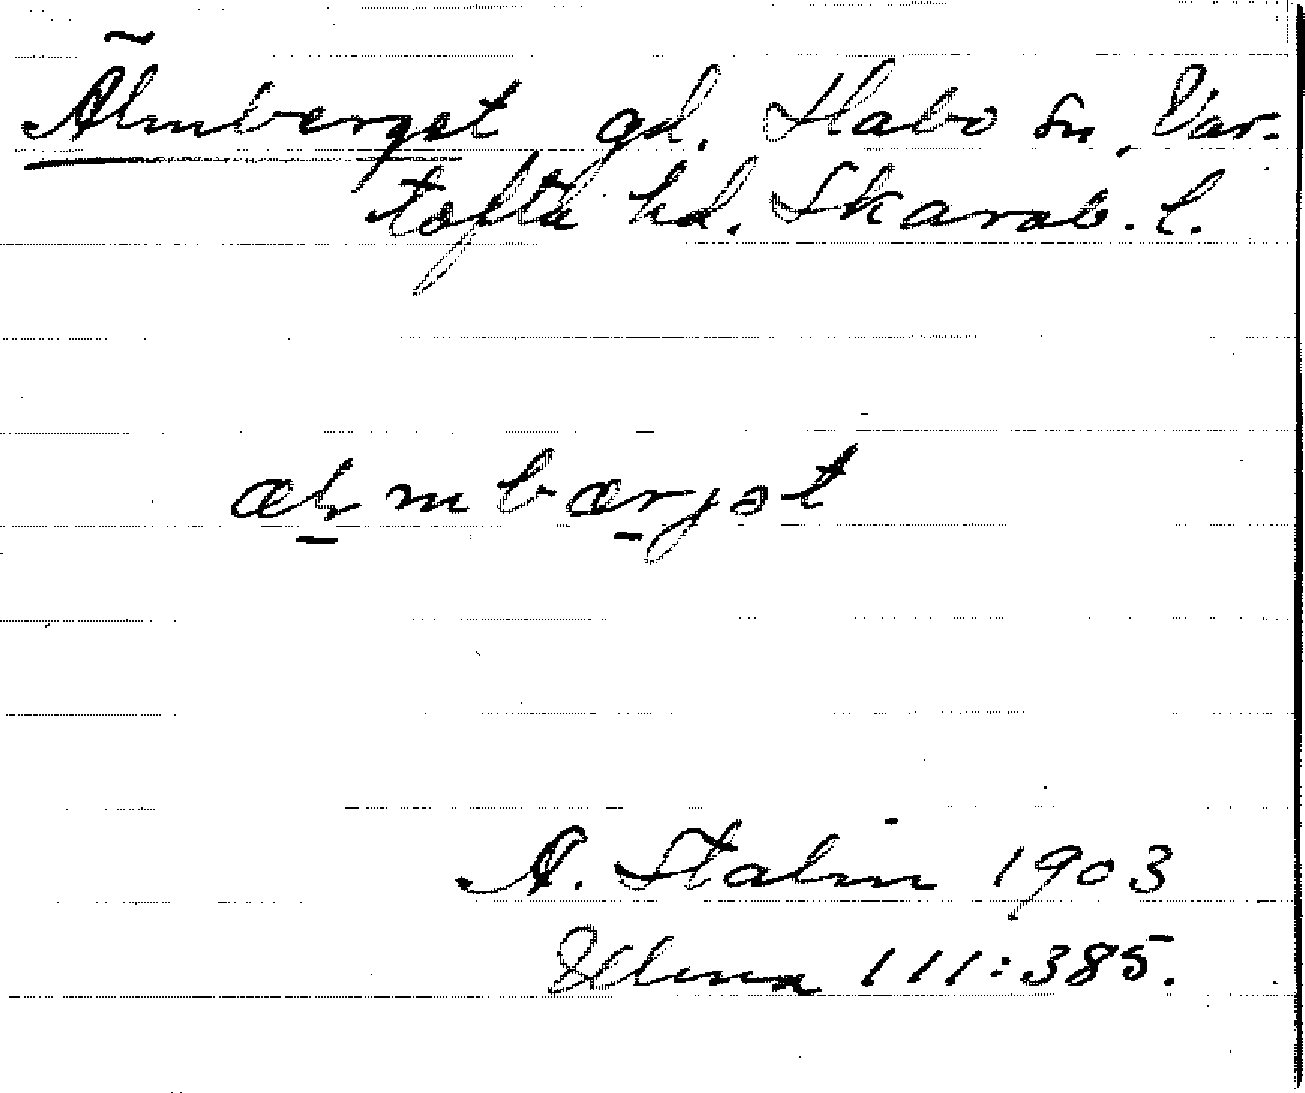 Älmbergst gd. Habo sn, Var-
tofta hd. Skarab. l.
ælmbærgst
A. Stalin 1903
111:385.